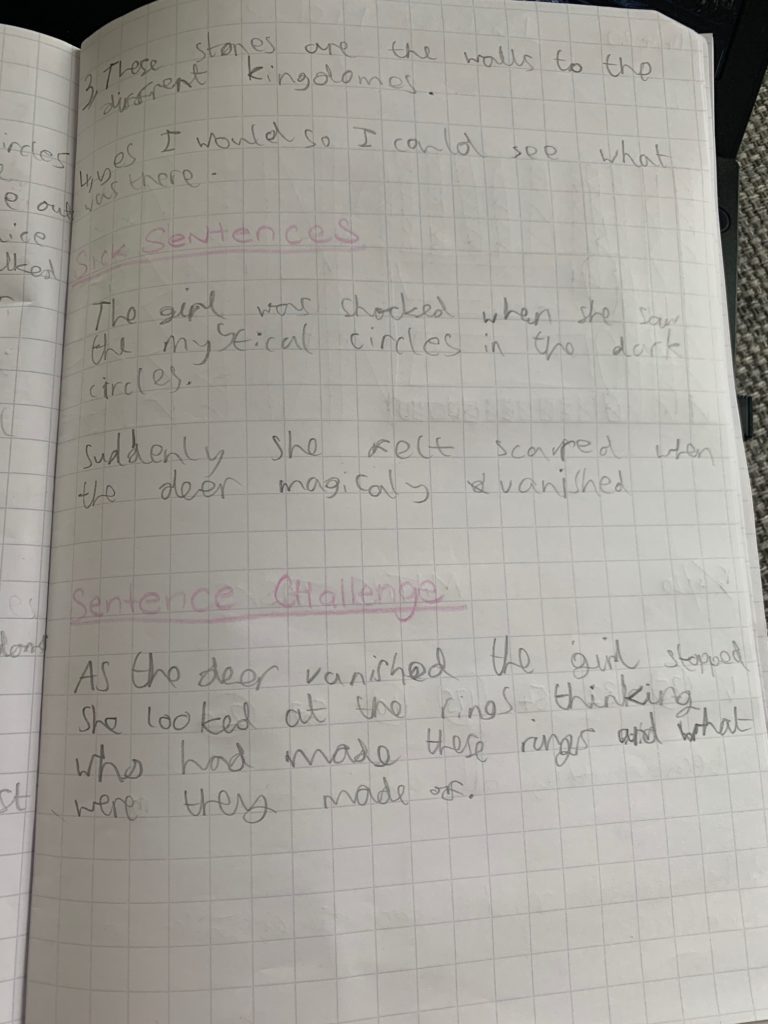 3, These stones are the walls to the
dirffrent kingdomes.
4, yes I would so I could see what
was there.
Sick Sentences
The girl was shocked when she saw
the mystical circles in the dark
circles.
suddenly she felt scarred when
the deer magicaly vanished
Sentence Challenge
As the deer vanished the girl stopped
she looked at the rings thinking
who had made these rings and what
were they made of.
ircles
e out
ice
lked
es
st